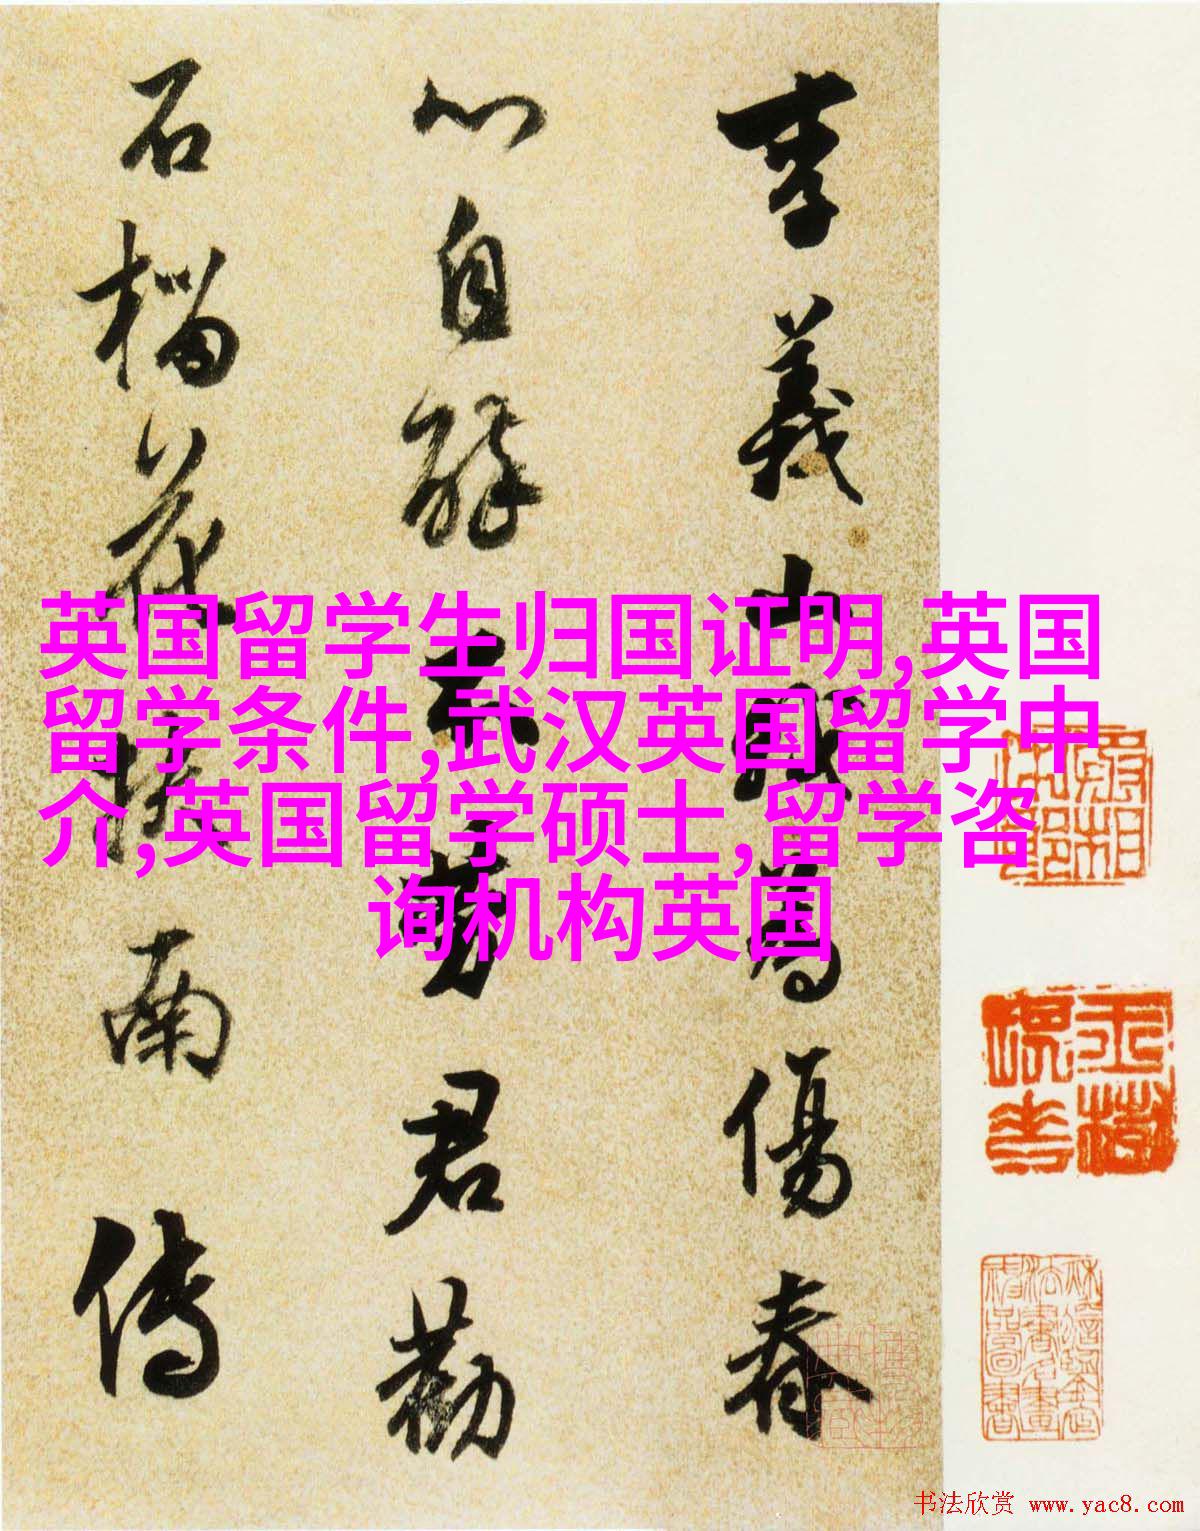 英国留学生归国证明,英国
留学条件,武汉英国留学中
介,英国留学硕士,留学咨
询机构英国
李義山我爲傷春
心自醉不勞君勸
石榴花南傳
书法欣赏 www.yac8.com